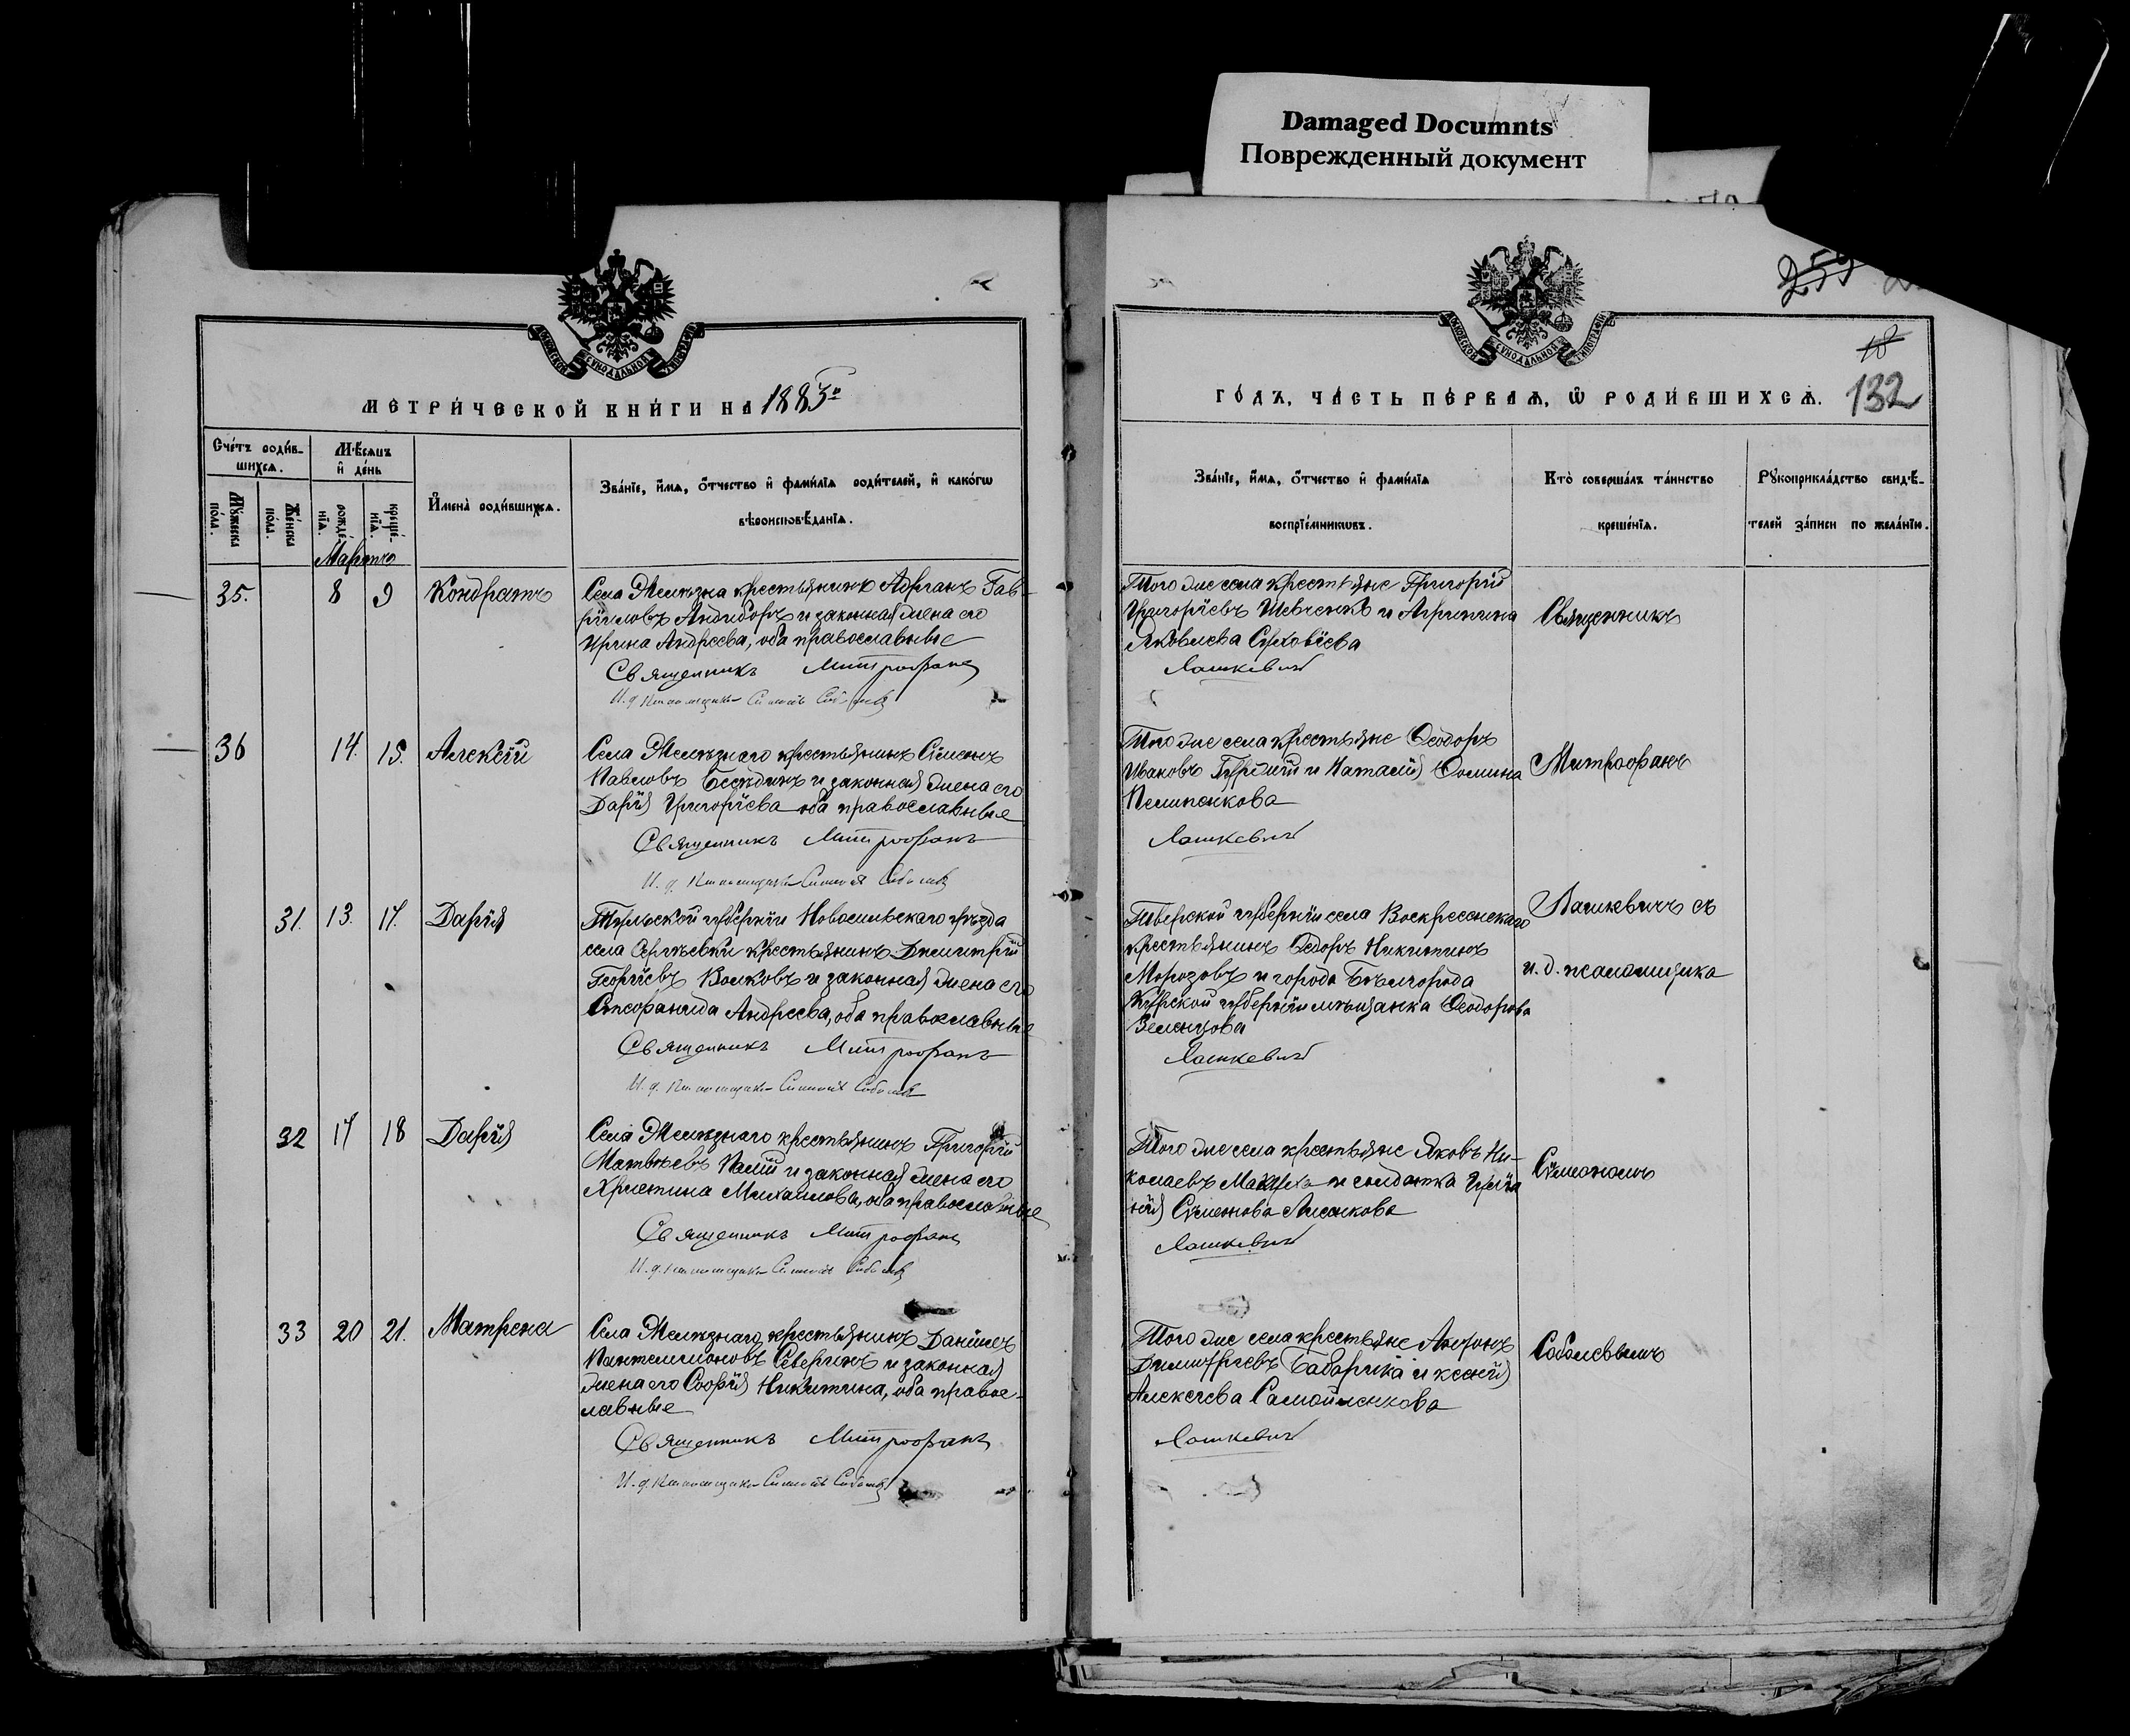 Damaged Documnts
Поврежденный документ
259
18
132
МОСКОВСКОЙ СѴНОДАЛЬНОЙ ТИПОГРАФІИ
МОСКОВСКОЙ СѴНОДАЛЬНОЙ ТИПОГРАФІИ
МЕТРИ́ЧЕСКОЙ КНИ́ГИ НА 1883й
ГО́ДЪ, ЧА́СТЬ ПЕ́РВАѦ, Ѡ РОДИ́ВШИХСѦ.
Сче́тъ роди́в-
шихсѧ.
Мꙋ́жеска по́ла.
Же́нска по́ла.
Мѣ́сѧцъ
и҆ де́нь
рожде́-нїѧ.
креще́-нїѧ.
И҆мена̀ роди́вшихсѧ.
Зва́нїе, и҆́мѧ, ѻ҆́тчество и҆ фами́лїѧ роди́телей, и҆ како́гѡ
вѣроисповѣ́данїѧ.
Зва́нїе, и҆́мѧ, ѻ҆́тчество и҆ фами́лїѧ
воспрїе́мникѡвъ.
Кто̀ соверша́лъ та́инство
креще́нїѧ.
Рꙋкоприкла́дство свидѣ́-
телей за́писи по жела́нїю.
Мартъ
35.
8
9
Кондратъ
села крестьянинъ Адріанъ Гав-
ріиловъ и законная жена его
Ирина Андреева, оба православные
Священникъ Митрофанъ
И. д. псаломщика Симеонъ Соболевъ
Того же села крестьяне Григорій
Григоріевъ Шевченко и Агрипина
Яковлева
Лашкевичъ
Священникъ
36
14.
15.
Алексій
Села Желѣзнаго крестьянинъ Сѵмеонъ
Павловъ Бесѣдинъ и законная жена его
Дарія Григоріева оба православные
Священникъ Митрофанъ
И. д. псаломщика Симеонъ Соболевъ
Того же села крестьяне Ѳеодоръ
Ивановъ и Наталія Ѳомина
Пелипенкова
Лашкевичъ
Митрофанъ
31.
13.
17.
Дарія
Тульской губерніи Новосильскаго уѣзда
села Сергѣевки крестьянинъ Димитрій
Георгіевъ Волковъ и законная жена его
Андреева, оба православные
Священникъ Митрофанъ
И. д. псаломщика Симеонъ Соболевъ
Тверской губерніи села Воскресенскаго
крестьянинъ Ѳедоръ Никитинъ
Морозовъ и города Бѣлгорода
Курской губерніи мѣщанка Ѳеодорова
Зеленцова
Лашкевичъ
Лашкевичъ съ
и. д. псаломщика
32
17
18
Дарія
Села Желѣзнаго крестьянинъ Григорій
Матвѣевъ Палій и законная жена его
Христина Михайлова, оба православные
Священникъ Митрофанъ
И. д. псаломщика Симеонъ Соболевъ
Того же села крестьяне Яковъ Ни-
колаевъ и солдатка
Сѵмеонова Лисенкова
Лашкевичъ
Сѵмеономъ
33
20
21.
Матрена
Села Желѣзнаго крестьянинъ Даніилъ
Пантелимоновъ Северинъ и законная
жена его Софія Никитина, оба право-
славные
Священникъ Митрофанъ
И. д. псаломщика Симеонъ Соболевъ
Того же села крестьяне Антонъ
Димитріевъ Бабарика и Ксенія
Алексеева Самойленкова
Лашкевичъ
Соболевымъ